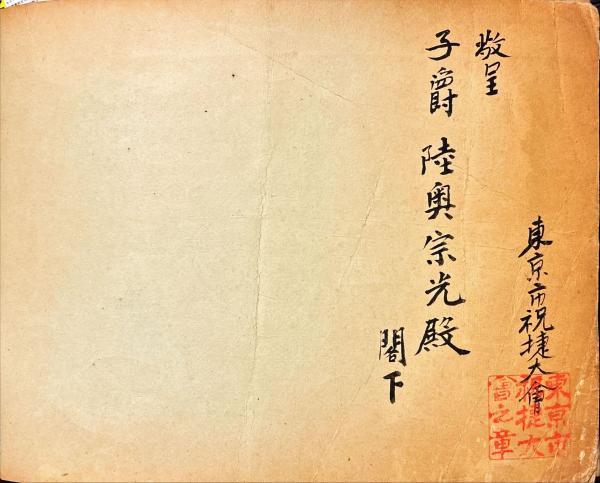 東京市祝捷大會
敬呈
子爵 陸奥宗光殿
閣下
東京市
祝捷大
會之章